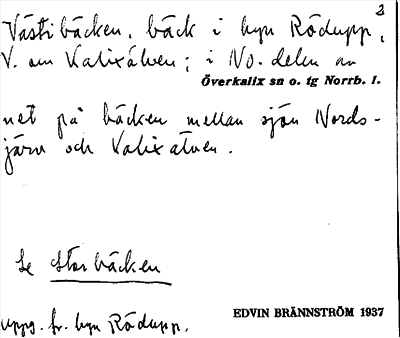 2
Västibäcken, bäck i byn Rödupp,
V. om Kalixälven; i No. delen av
Överkalix sn o. tg Norrb. l.
net på bäcken mellan sjön Nords-
järv och Kalixälven.
Se Storbäcken
EDVIN BRÄNNSTRÖM 1937
uppg. fr. byn Rödupp.